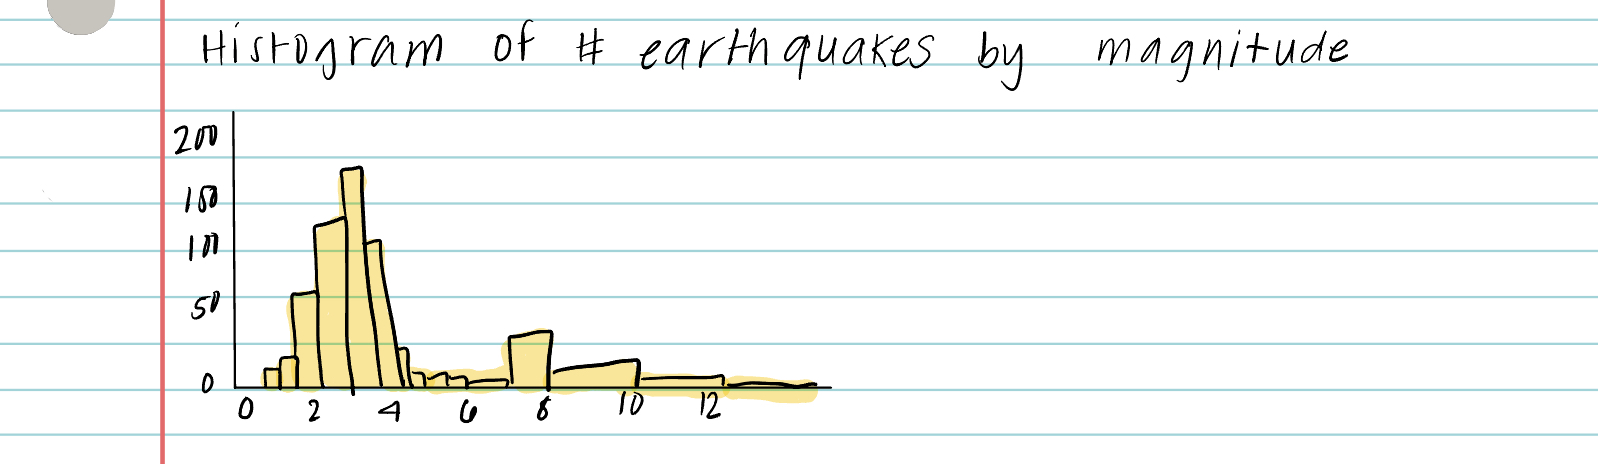 Histogram of # earthquakes by magnitude
200
150
100
50
0
0 2 4 6 8 10 12